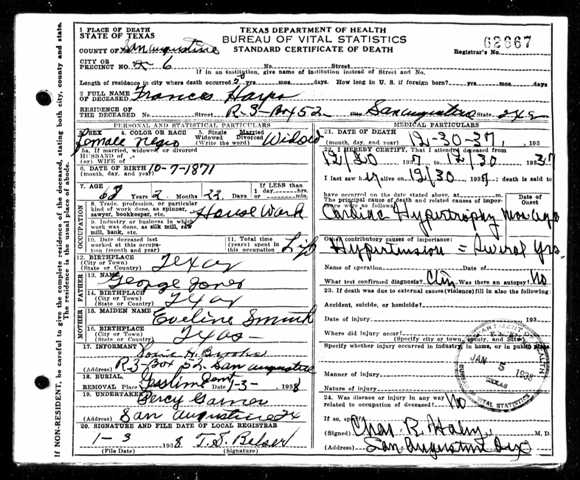 1 PLACE OF DEATH
STATE OF TEXAS
TEXAS DEPARTMENT OF HEALTH
BUREAU OF VITAL STATISTICS
STANDARD CERTIFICATE OF DEATH
COUNTY OF San Augustine
Registrar's No.
CITY OR
PRECINCT NO. 6
No. Street
If in an institution, give name of institution instead of Street and No.
Length of residence where death occurred yrs. mos. days. How long in U. S. if foreign born? yrs. mos. days.
2 FULL NAME
OF DECEASED Frances Harps
RESIDENCE OF
THE DECEASED R-3-Box 52 San Augustine State
PERSONAL AND STATISTICAL PARTICULARS
MEDICAL PARTICULARS
3. SEX Female
4. COLOR OR RACE Negro
5. Single Married
Widowed Divorced
(Write the word) Widow
21. DATE OF DEATH
(month, day, and year) 12-30-37 193
If married, widowed or divorced
HUSBAND of
(or) WIFE of
22. I HEREBY CERTIFY, That I attended deceased from
12/30 7 to 12/30 1937
6. DATE OF BIRTH 10-7-1871
(month, day, and year)
I last saw h alive on 12/30 193 death is said to
have occurred on the date stated above, at m.
7. AGE 2 22
If less than 1 day
The principal cause of death and related causes Date of
Onset
Cardiac Hypertrophy
OCCUPATION
8. Trade, profession, or particular
kind of work done, as spinner,
sawyer, bookkeeper, etc. House Work
9. Industry or business in which
work was done, as silk mill,
saw mill, bank, etc.
10. Date deceased last
worked at this occupation
(month and year)
11. Total time (years)
spent in this
occupation Life
Other contributory causes of importance:
Hypertension = Several Yrs.
12. BIRTHPLACE
(City or Town)
(State or Country) Texas
Name of operation Date of
What test confirmed diagnosis? Clin Was there an autopsy? No
FATHER
13. NAME George Jones
14. BIRTHPLACE
(City or Town)
(State or Country) Texas
23. If death was due to external causes (violence) fill in also the following
Accident, suicide, or homicide?
Date of injury 193
MOTHER
15. MAIDEN NAME Eveline Smith
16. BIRTHPLACE
(City or Town)
(State or Country) Texas
Where did injury occur?
Specify whether injury occurred in industry, in home, or in public place
17. INFORMANT Brooks
Address R-3-Box 52 San Augustine
Manner of injury
Nature of injury
18. BURIAL
REMOVAL Place Date 1-3- 1938
JAN 5 1938
TEXAS
VITAL STATISTICS
24. Was disease or injury in any way
related to occupation of deceased? No
19. UNDERTAKER Percy Garner
(Address) San Augustine
If so, specify
20. SIGNATURE AND FILE DATE OF LOCAL REGISTRAR
1-3 1938
(File Date) (Signature)
(Signed) Chas. R. Haley M. D.
(Address) San Augustine